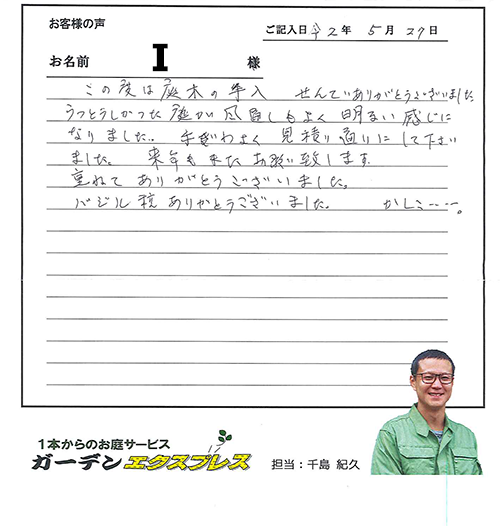 お客様の声
ご記入日 令2年 5月 29日
お名前 I 様
この度は庭木の手入 せんていありがとうございました
うっとうしかった庭が風通しもよく明るい感じに
なりました。手ぎわよく見積り通りにして下さい
ました。来年も またお願い致します。
重ねて ありがとうございました。
バジル 苗 ありがとうございました。 かしこ……。
1本からのお庭サービス
ガーデンエクスプレス
担当：千島 紀久